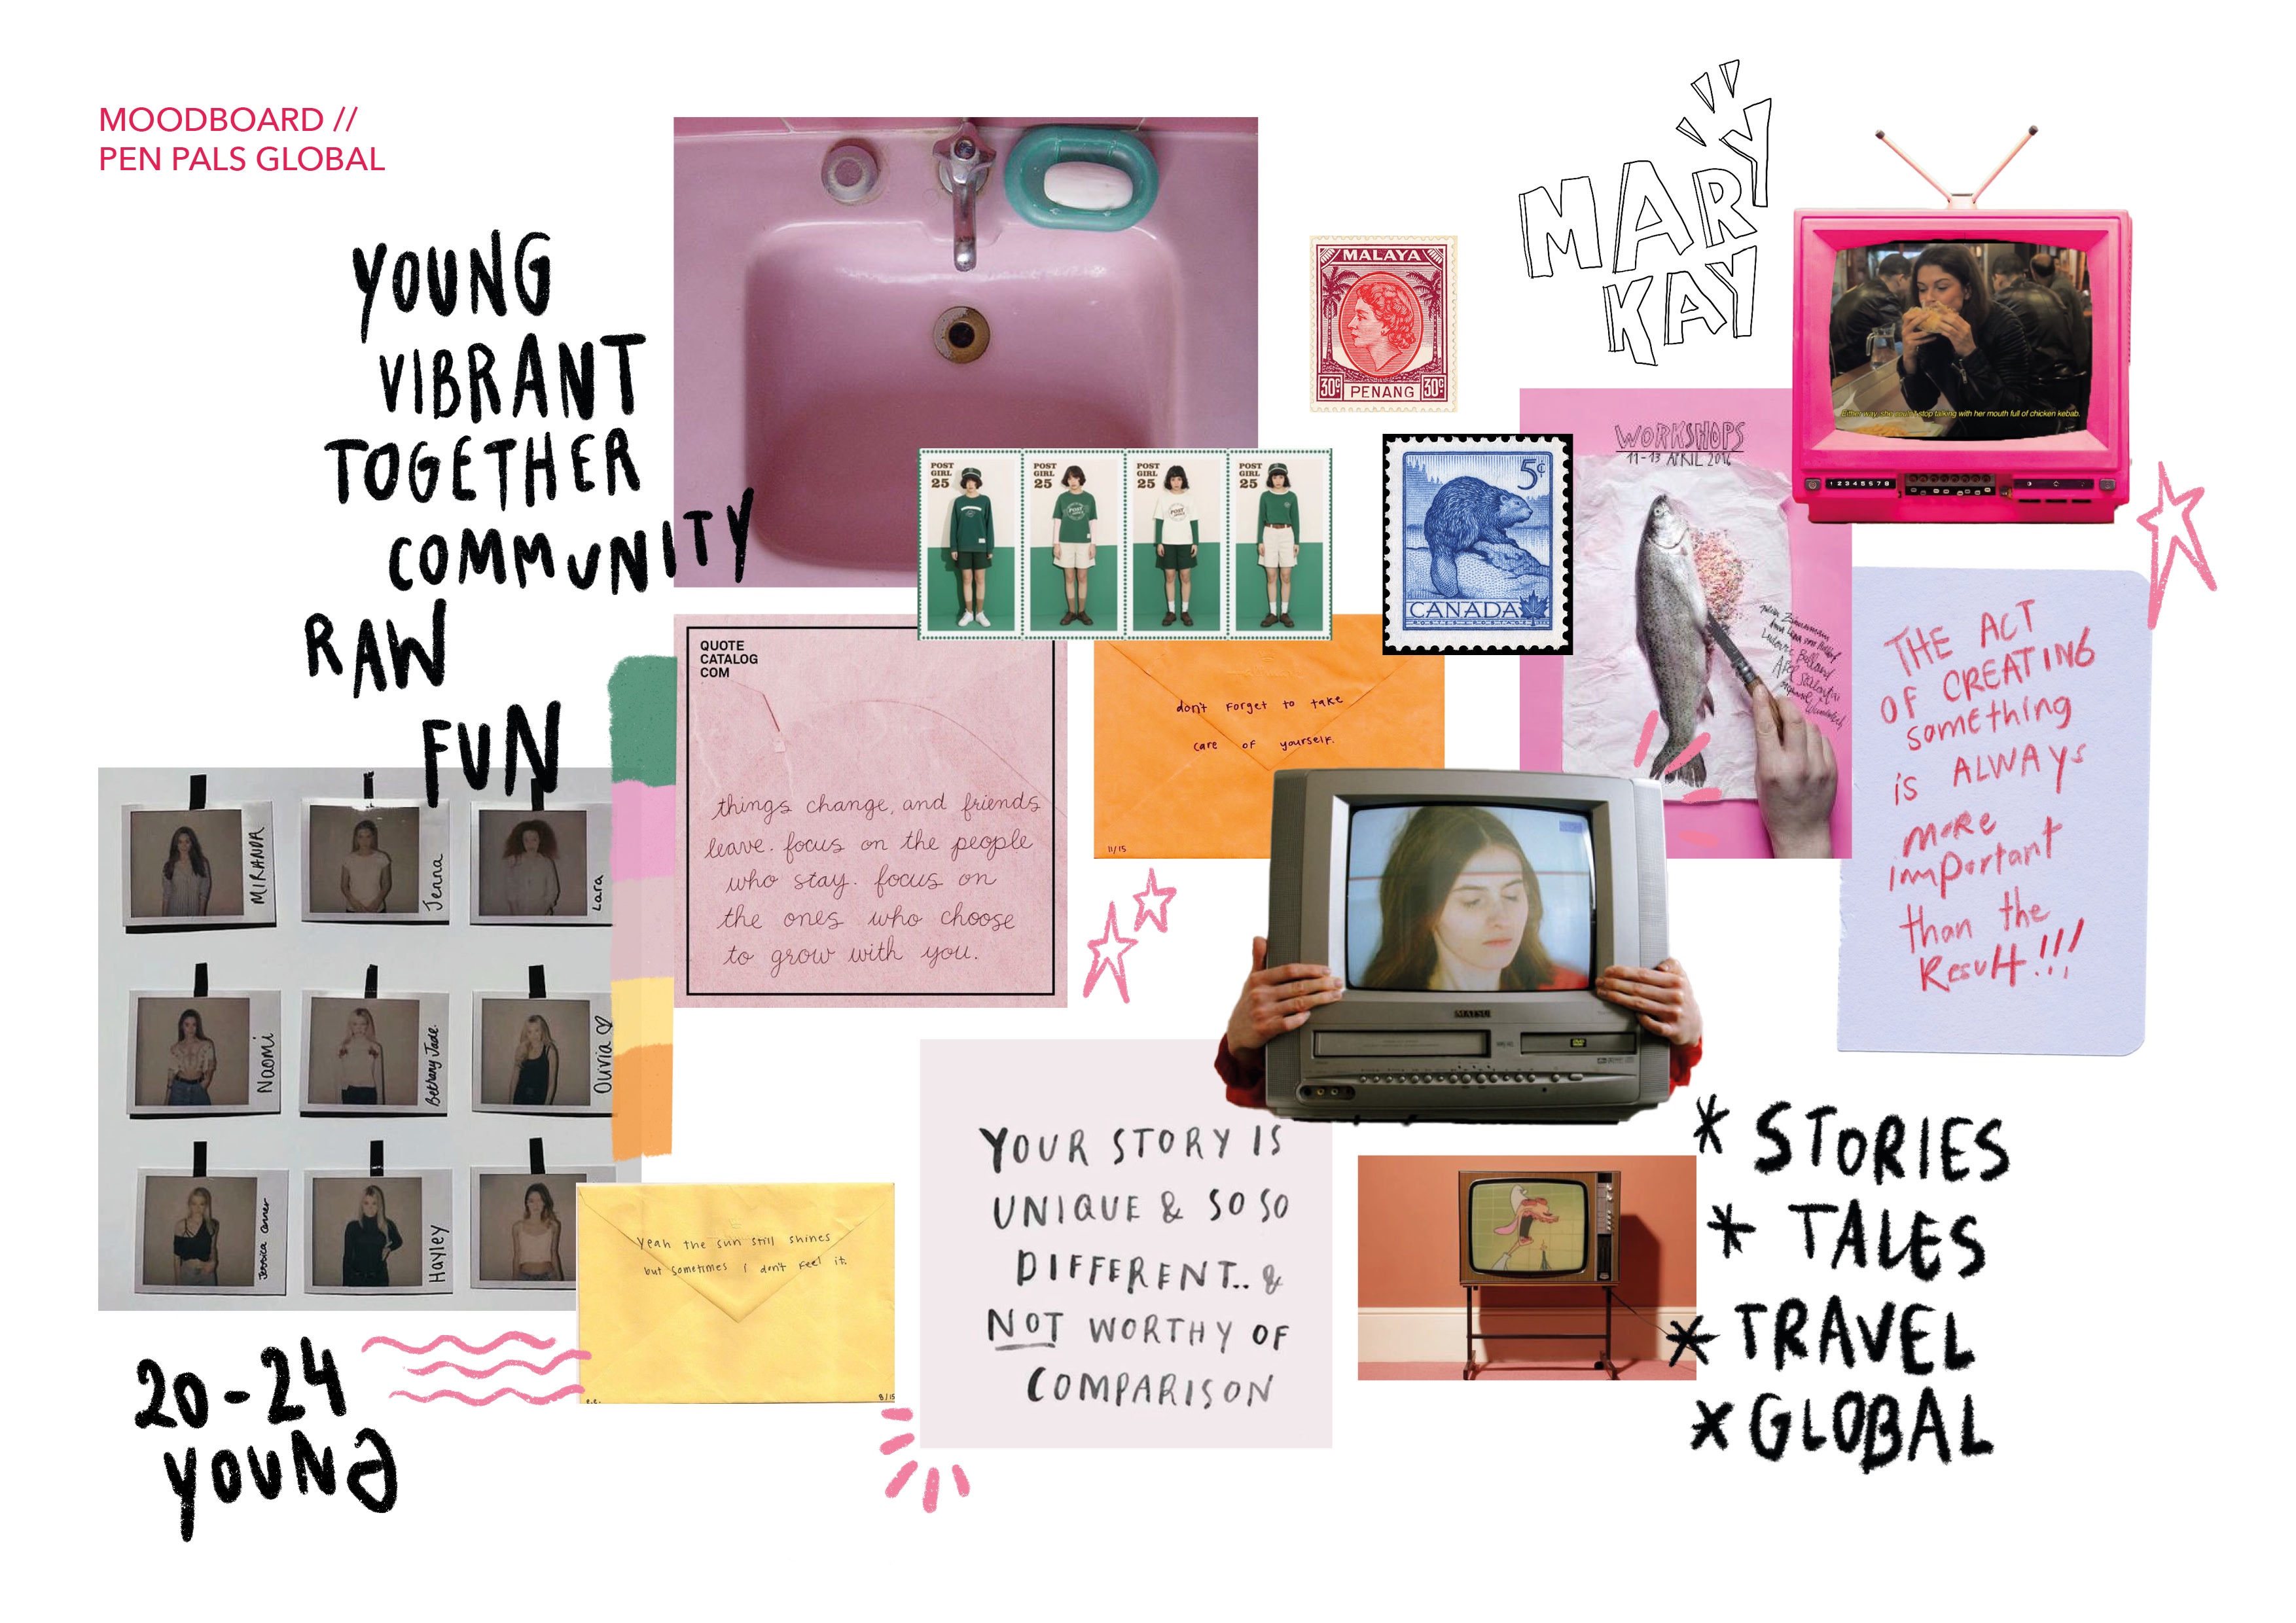 MOODBOARD //
PEN PALS GLOBAL
YOUNG
VIBRANT
TOGETHER
COMMUNITY
RAW
FUN
MIRANDA
Jenna
Lara
Naomi
Bethany Jade.
Olivia
Jessica
Hayley
20-24
YOUNG
MALAYA
30c
PENANG
30c
POST
GIRL
25
POST
GIRL
25
POST
GIRL
25
POST
GIRL
25
5¢
CANADA
MARY
KAY
QUOTE
CATALOG
COM
things change, and friends
leave. focus on the people
who stay. focus on
the ones who choose
to grow with you.
don't forget to take
care of yourself.
11/15
WORKSHOPS
11-13 APRIL 2016
stop talking with her mouth full of chicken kebab.
1 2 3 4 5 6 7 8
THE ACT
OF CREATING
something
is ALWAYS
more
important
than the
Result!!!
MATSUI
Yeah the sun still shines
but sometimes I don't feel it.
8/15
YOUR STORY IS
UNIQUE & SO SO
DIFFERENT.. &
NOT WORTHY OF
COMPARISON
* STORIES
* TALES
* TRAVEL
* GLOBAL